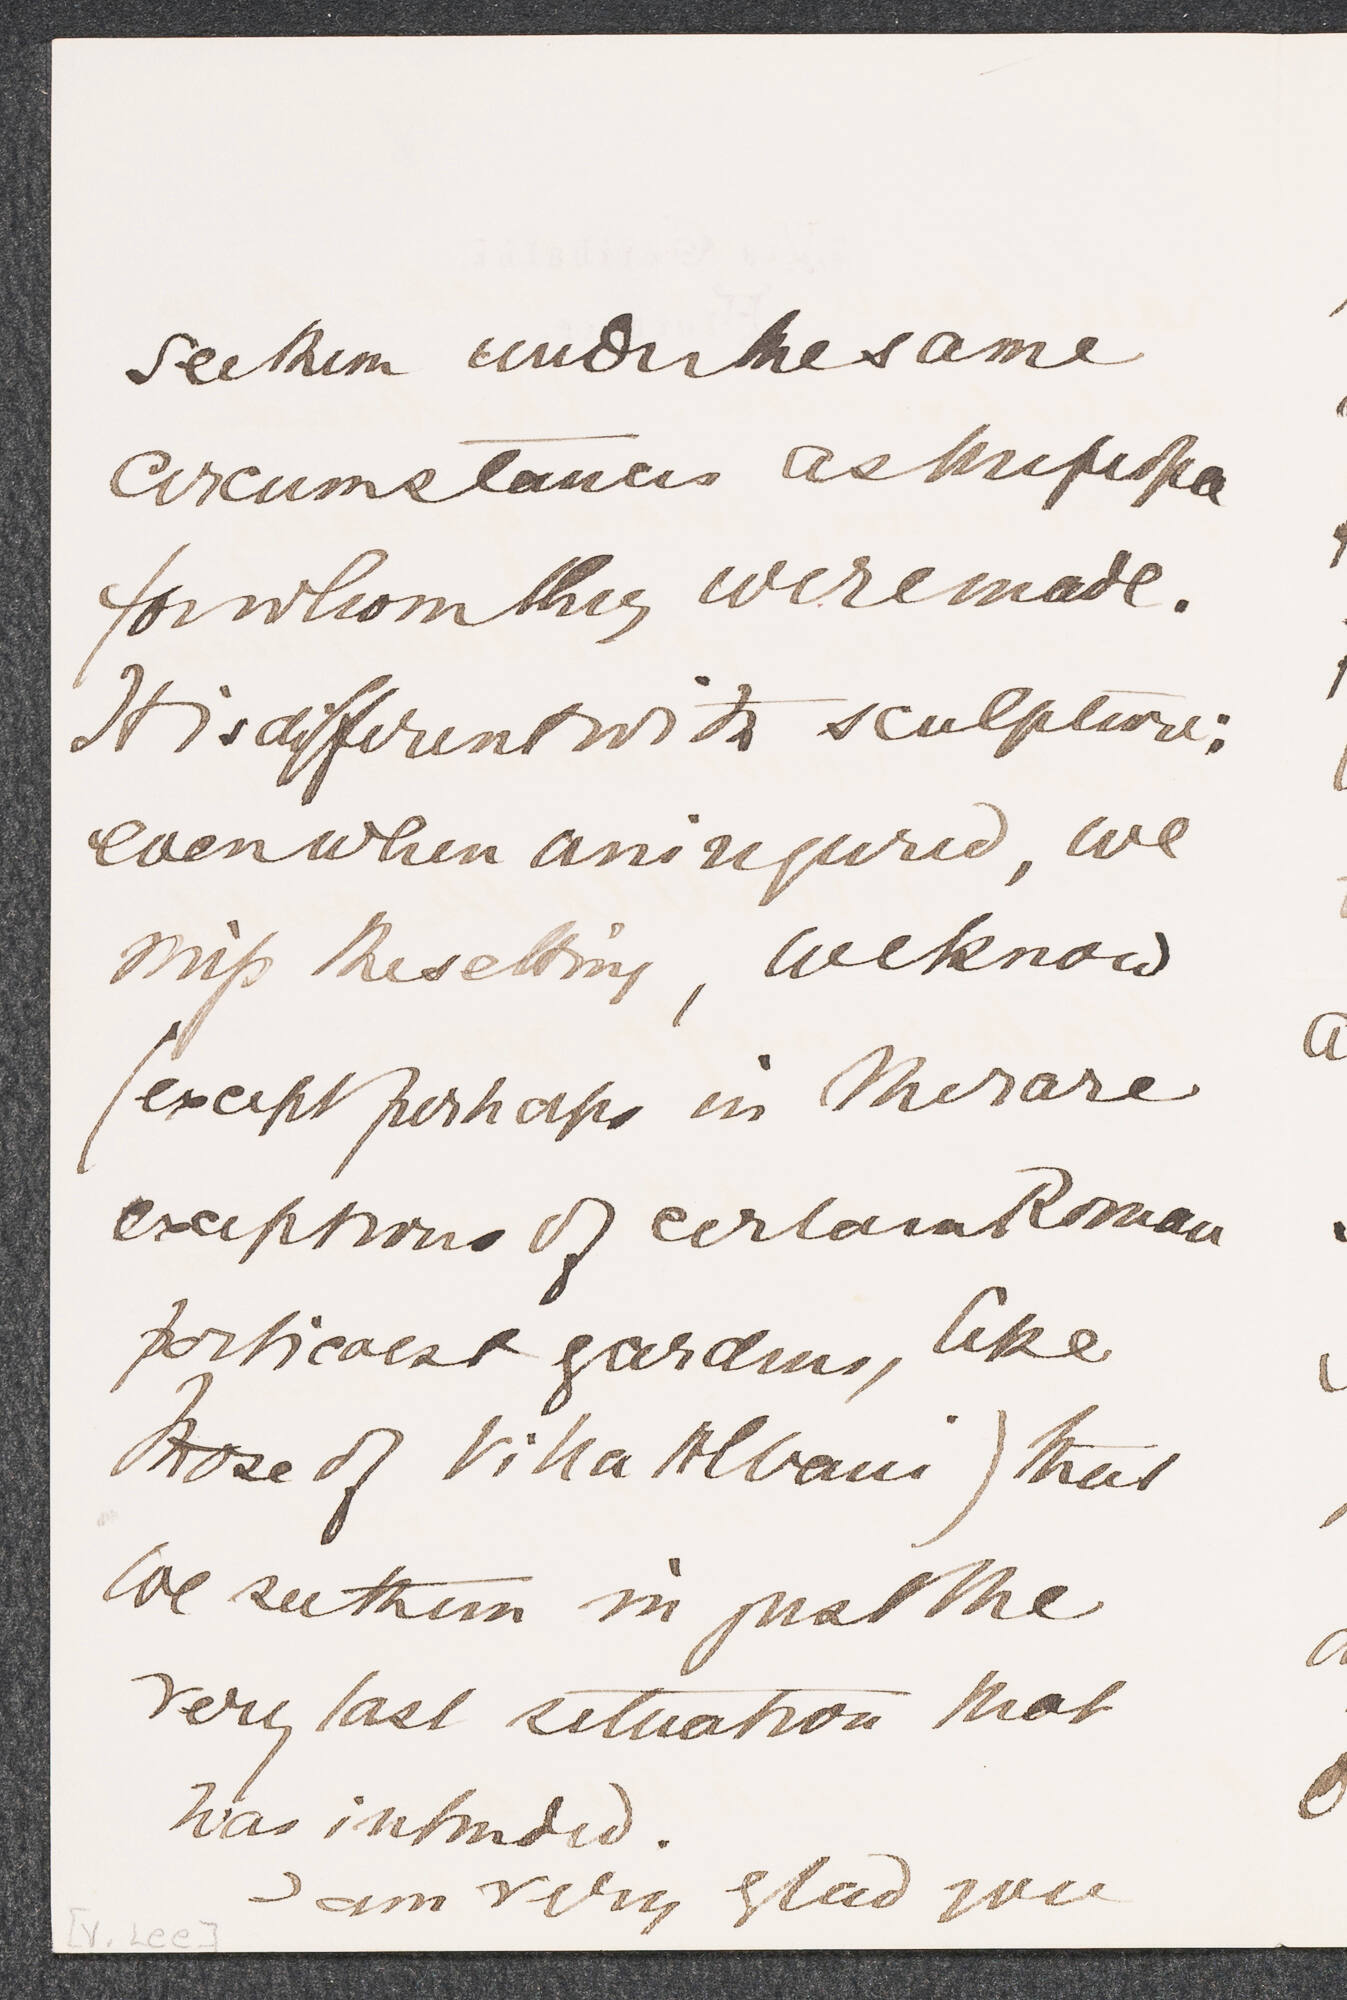 see them under the same
circumstances as the people
for whom they were made.
It is different with sculpture;
even when uninjured, we
miss the setting, we know
(except perhaps in the rare
exceptions of certain Roman
porticoes & gardens, like
those of Villa Albani) that
we see them in just the
very last situation that
was intended.
I am very glad you
[V. Lee]